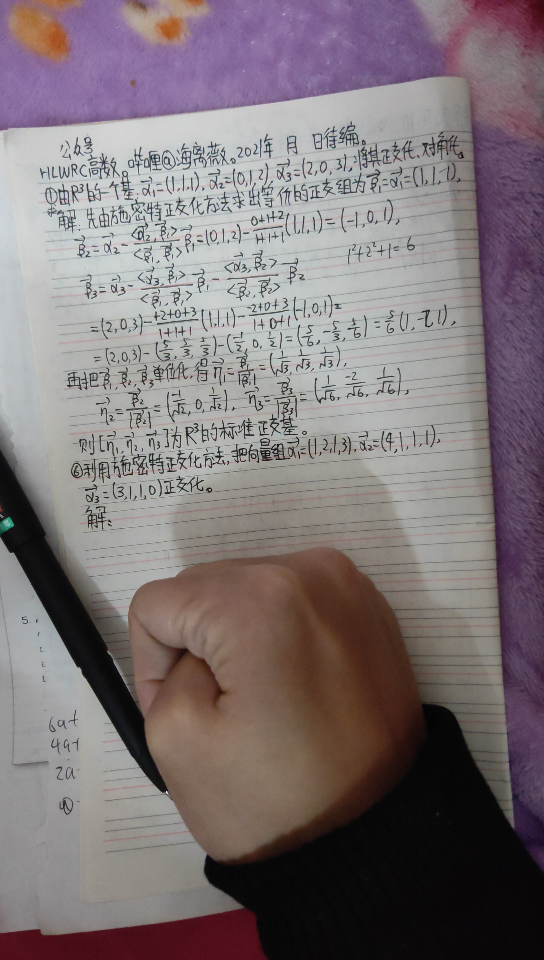 公众号
HLWRC高数。哔哩@海离薇。2021年 月 日待编。
①由R³的一个基,α⃗₁=(1,1,1),α⃗₂=(0,1,2),α⃗₃=(2,0,3),将其正交化、对角化。
解:先由施密特正交化方法求出等价的正交组为β⃗₁=α⃗₁=(1,1,1),
β⃗₂=α⃗₂-<α⃗₂,β⃗₁>/<β⃗₁,β⃗₁>β⃗₁=(0,1,2)-(0+1+2)/(1+1+1)(1,1,1)=(-1,0,1),
1²+2²+1=6
β⃗₃=α⃗₃-<α⃗₃,β⃗₁>/<β⃗₁,β⃗₁>β⃗₁-<α⃗₃,β⃗₂>/<β⃗₂,β⃗₂>β⃗₂
=(2,0,3)-(+2+0+3)/(1+1+1)(1,1,1)-(-2+0+3)/(1+0+1)(-1,0,1)=
=(2,0,3)-(5/3,5/3,5/3)-(-1/2,0,1/2)=(5/6,-5/3,5/6)=5/6(1,-2,1),
再把β⃗₁,β⃗₂,β⃗₃单位化,得η⃗₁=β⃗₁/|β⃗₁|=(1/√3,1/√3,1/√3),
η⃗₂=β⃗₂/|β⃗₂|=(-1/√2,0,1/√2),η⃗₃=β⃗₃/|β⃗₃|=(1/√6,-2/√6,1/√6),
则[η⃗₁,η⃗₂,η⃗₃]为R³的标准正交基。
⑥利用施密特正交化方法,把向量组α⃗₁=(1,2,1,3),α⃗₂=(4,1,1,1),
α⃗₃=(3,1,1,0)正交化。
解:
5.
6a+
4a+
2a-